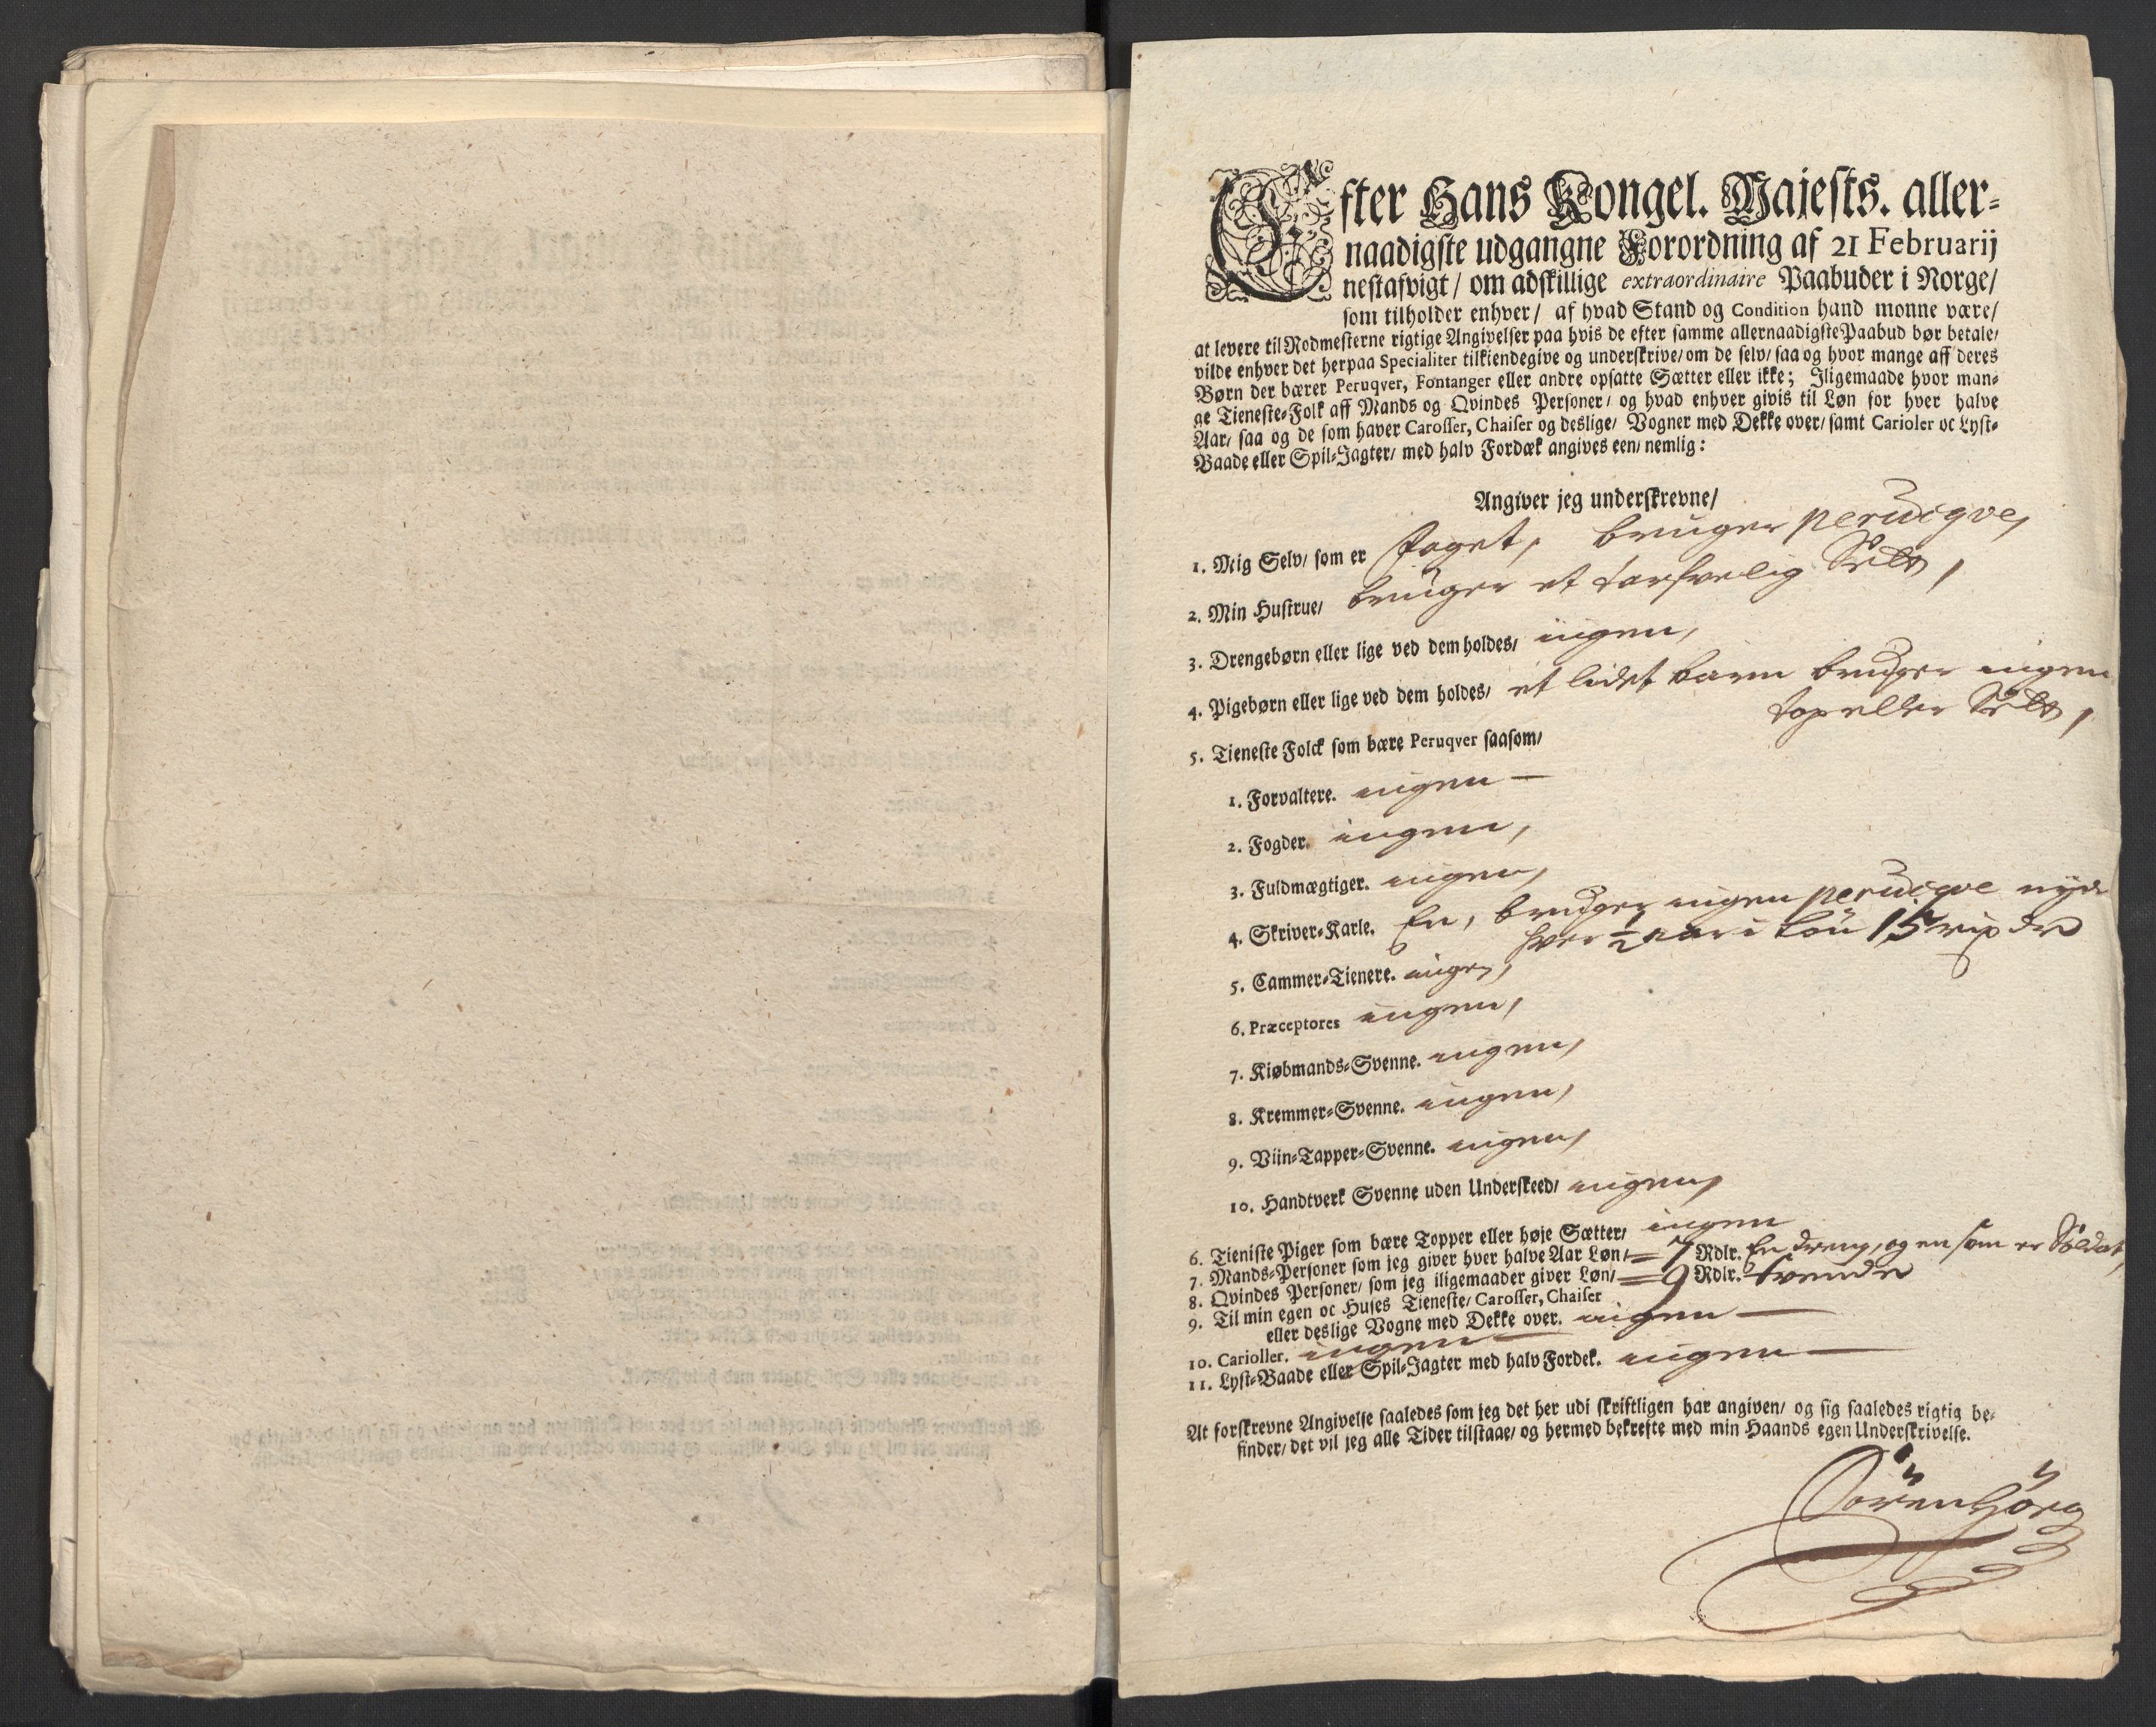 Efter Hans Kongel. Majests. aller-
naadigste udgangne Forordning af 21 Februarij
nestafvigt/ om adskillige extraordinaire Paabuder i Norge/
som tilholder enhver/ af hvad Stand og Condition hand monne være/
at levere til Rodmesterne rigtige Angivelser paa hvis de efter samme allernaadigste Paabud bør betale/
vilde enhver det herpaa Specialiter tilkiendegive og underskrive/ om de selv/ saa og hvor mange aff deres
Børn der bærer Peruqver, Fontanger eller andre opsatte Sætter eller ikke; Iligemaade hvor man-
ge Tieneste-Folk aff Mands og Qvindes Personer/ og hvad enhver givis til Løn for hver halve
Aar/ saa og de som haver Carosser, Chaiser og deslige/ Vogner med Dekke over/ samt Carioler oc Lyst-
Baade eller Spil-Jagter/ med halv Fordæk angives een/ nemlig:
Angiver jeg underskrevne/
1. Mig Selv/ som er Foget, bruger perucqve,
2. Min Hustrue/ bruger et tarfvelig Sætt,
3. Drengebørn eller lige ved dem holdes/ ingen,
4. Pigebørn eller lige ved dem holdes/ et lidet barn bruger ingen
top eller Sætt,
5. Tieneste Folck som bære Peruqver saasom/
1. Forvaltere. ingen —
2. Fogder. ingen,
3. Fuldmægtiger. ingen,
4. Skriver-Karle. En, bruger ingen perucqve nyder
hver ½ aar i Løn 15 rixdr
5. Cammer-Tienere. ingen,
6. Præceptores ingen,
7. Kiøbmands-Svenne. ingen,
8. Kremmer-Svenne. ingen,
9. Viin-Tapper-Svenne. ingen,
10. Handtverk Svenne uden Underskeed/ ingen,
6. Tieniste Piger som bære Topper eller høje Sætter/ ingen
7. Mands-Personer som jeg giver hver halve Aar Løn/ = 7 Rdlr. En dreng, og en som er Soldat,
8. Qvindes Personer/ som jeg iligemaader giver Løn/ = 9 Rdlr. tvende
9. Til min egen oc Huses Tieneste/ Carosser, Chaiser
eller deslige Vogne med Dekke over. ingen —
10. Carioller. ingen —
11. Lyst-Baade eller Spil-Jagter med halv Fordek. ingen —
At forskrevne Angivelse saaledes som jeg det her udi skriftligen har angiven/ og sig saaledes rigtig be-
finder/ det vil jeg alle Tider tilstaae/ og hermed bekrefte med min Haands egen Underskrivelse.
Sören